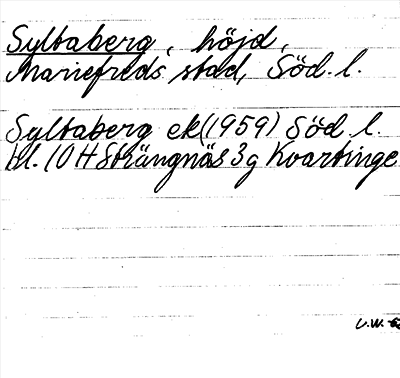 Syltaberg, höjd,
Mariefreds stad, Söd. l.
Syltaberg ek (1959) Söd. l.
bl. 10 H Strängnäs 3g Kvartinge
U.W.